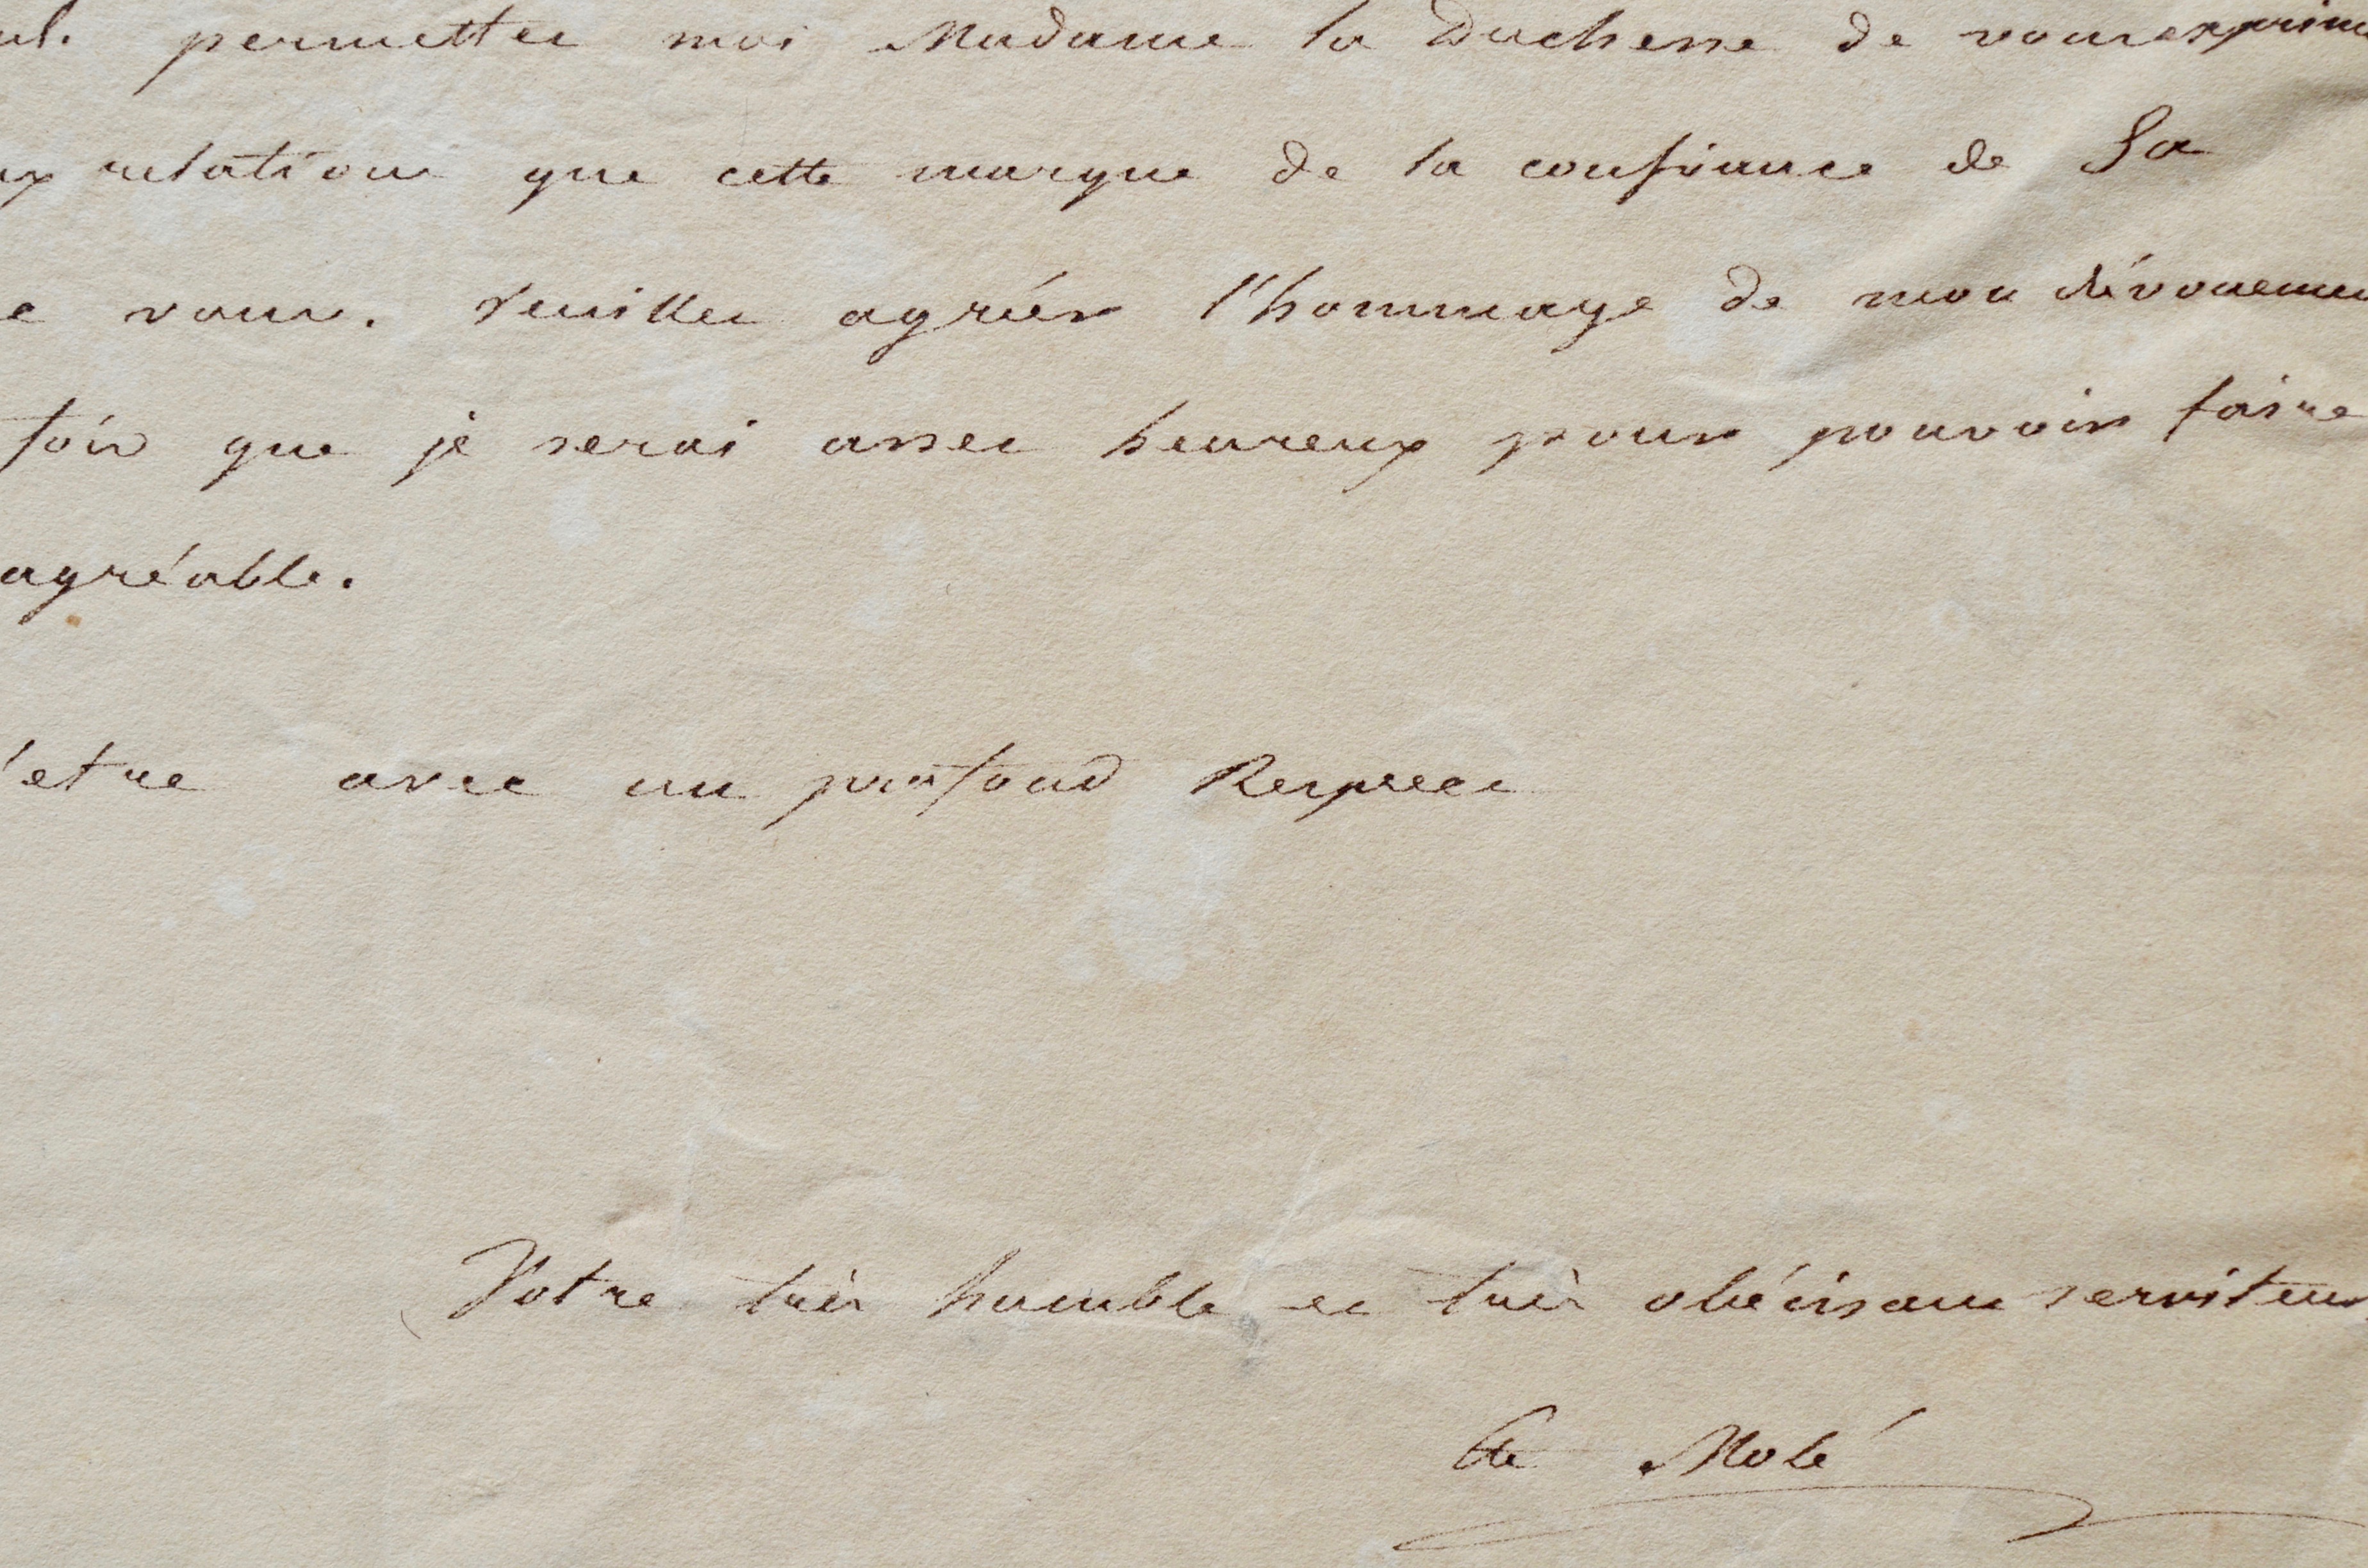 permettez moi Madame la Duchesse de vous exprime
relations que cette marque de la confiance de Sa
e vous. Veuillez agréer l'hommage de mon dévouemen
fois que je serai assez heureux pour pouvoir faire
agréable.
'etre avec un profond Respect
Votre très humble et très obéissant serviteur
Cte Molé